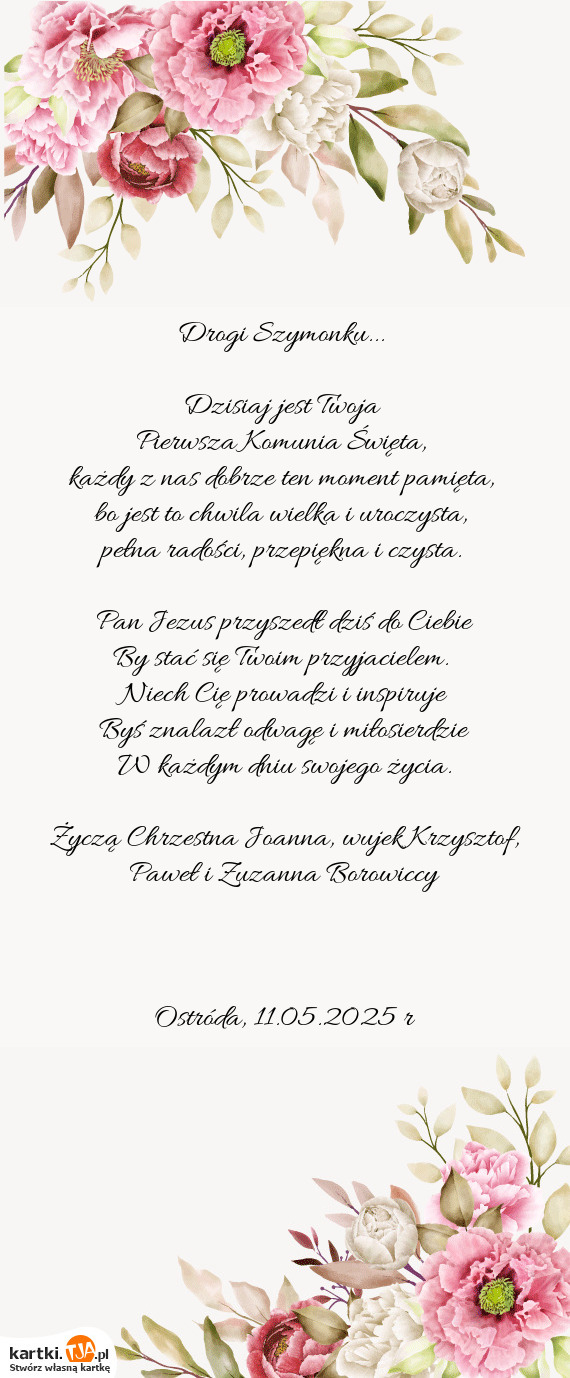 Drogi Szymonku...
Dzisiaj jest Twoja
Pierwsza Komunia Święta,
każdy z nas dobrze ten moment pamięta,
bo jest to chwila wielka i uroczysta,
pełna radości, przepiękna i czysta.
Pan Jezus przyszedł dziś do Ciebie
By stać się Twoim przyjacielem.
Niech Cię prowadzi i inspiruje
Byś znalazł odwagę i miłosierdzie
W każdym dniu swojego życia.
Życzą Chrzestna Joanna, wujek Krzysztof,
Paweł i Zuzanna Borowiccy
Ostróda, 11.05.2025 r
kartki.TJA.pl
Stwórz własną kartkę